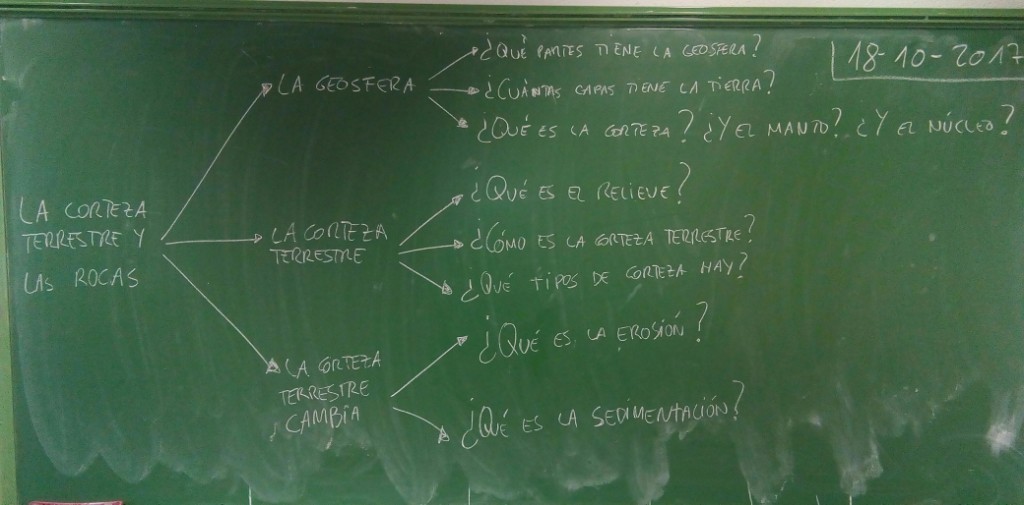 18-10-2017
LA CORTEZA
TERRESTRE Y
LAS ROCAS
LA GEOSFERA
¿QUÉ PARTES TIENE LA GEOSFERA?
¿CUÁNTAS CAPAS TIENE LA TIERRA?
¿QUÉ ES LA CORTEZA? ¿Y EL MANTO? ¿Y EL NÚCLEO?
LA CORTEZA
TERRESTRE
¿QUÉ ES EL RELIEVE?
¿CÓMO ES LA CORTEZA TERRESTRE?
¿QUÉ TIPOS DE CORTEZA HAY?
LA CORTEZA
TERRESTRE
CAMBIA
¿QUÉ ES LA EROSIÓN?
¿QUÉ ES LA SEDIMENTACIÓN?